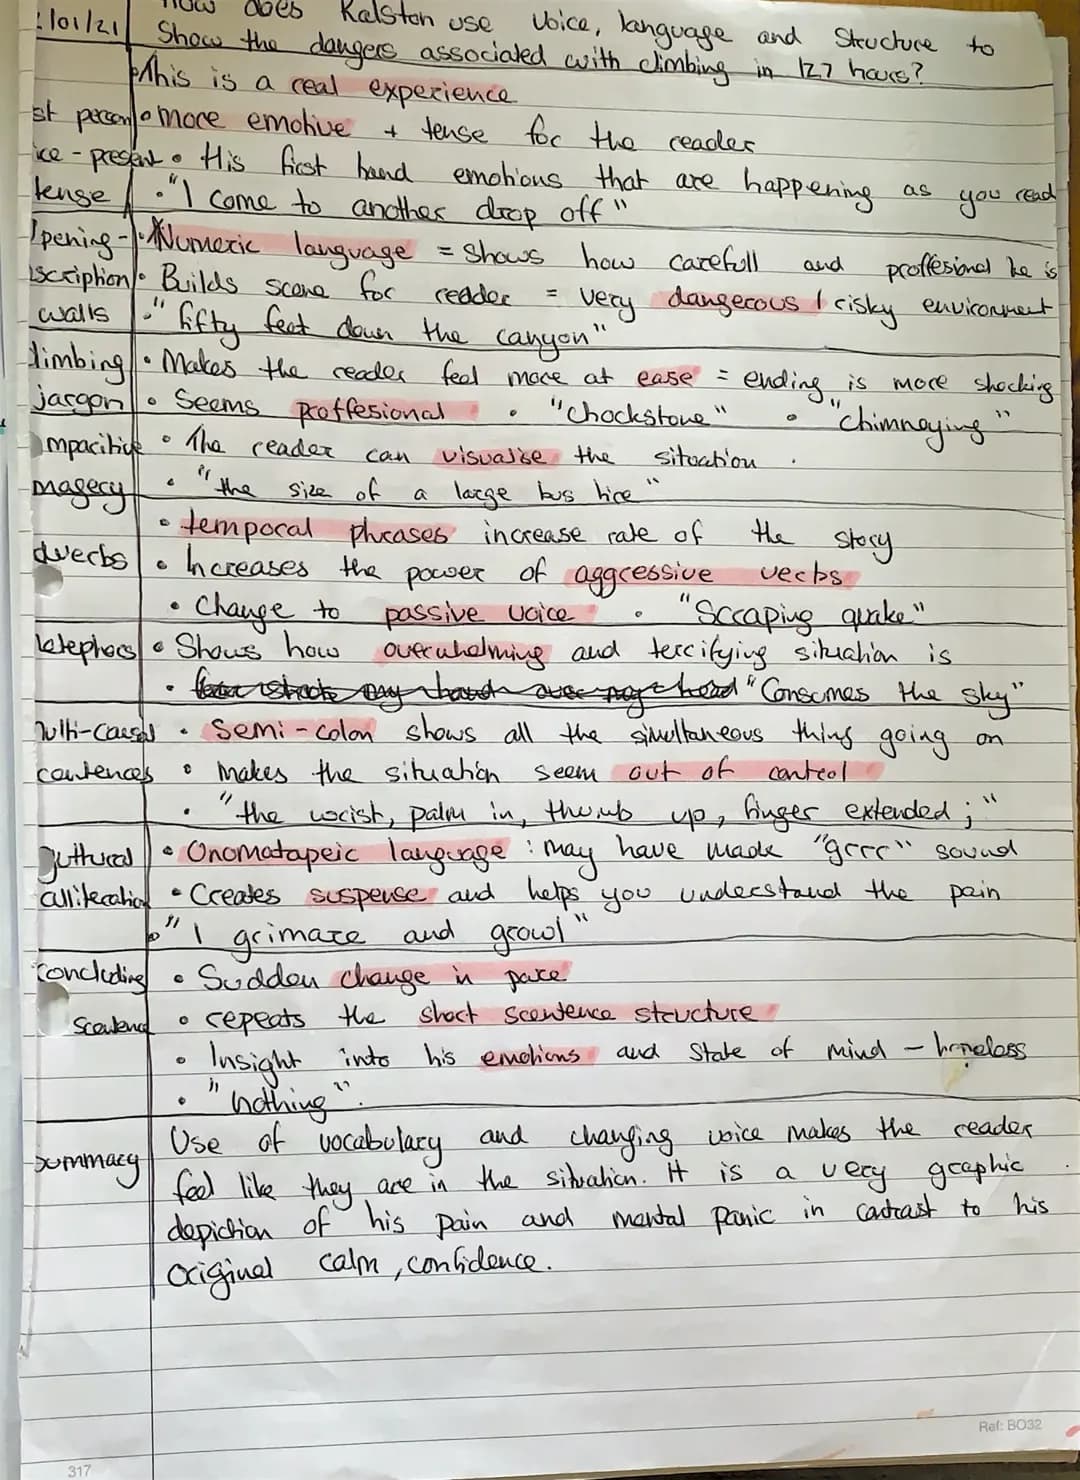 :/01/21 How does Ralston use voice, language and Structure to
Show the dangers associated with climbing in 127 hours?
This is a real experience
st person • more emotive + tense for the reader
ice - present • His first hand emotions that are happening as you read
tense • "I come to another drop off"
pening - • Numeric language = Shows how carefull and proffesional he is
scription • Builds scene for reader = very dangerous / risky environment
walls • "fifty feet down the canyon"
limbing • Makes the reader feel more at ease = ending is more shocking
jargon • Seems proffesional • "Chockstone" • "Chimneying"
mpacitive • The reader can visualise the situation.
magery • "the size of a large bus tire"
• temporal phrases increase rate of the story
dverbs • Increases the power of aggressive verbs
• Change to passive voice • "Scraping quake"
etephors • Shows how overwhelming and terrifying situation is
• "Consumes the sky"
multi-causal • Semi-colon shows all the simultaneous things going on
centences • makes the situation seem out of control
• "the wrist, palm in, thumb up, finger extended;"
guttural • Onomatapeic language : may have made "grrr" sound
alliteration • Creates suspense and helps you understand the pain
• "I grimace and growl"
concluding • Sudden change in pace
Scentence • repeats the short scentence structure
• Insight into his emotions and State of mind - hopeless
• "nothing".
Summary Use of vocabulary and changing voice makes the reader
feel like they are in the situation. It is a very graphic
depiction of his pain and mental panic in contrast to his
Original calm, confidence.
Ref: BO32
317